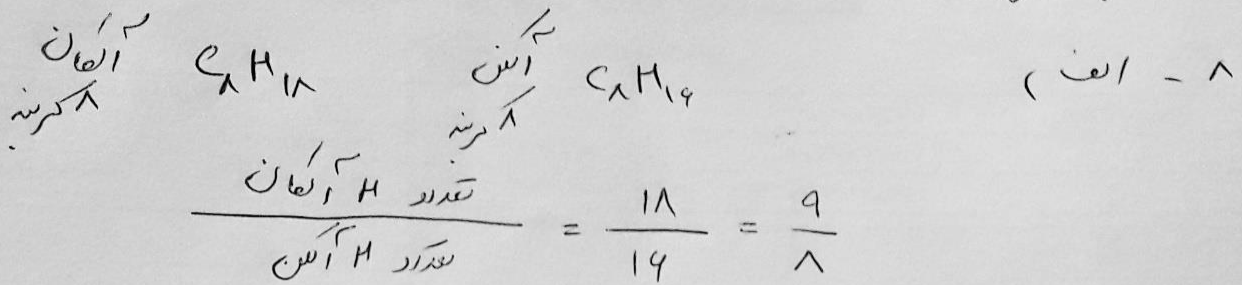 ۸ - الف) آلکن ۸ کربنه C₈H₁₆ آلکان ۸ کربنه C₈H₁₈
تعداد H آلکان / تعداد H آلکن = ۱۸ / ۱۶ = ۹ / ۸